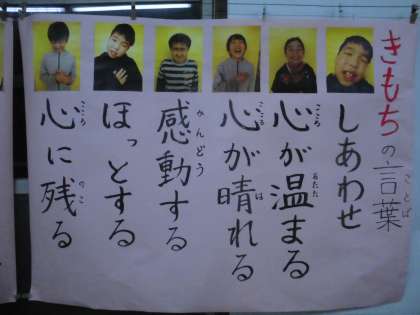 きもちの言葉
しあわせ
心が温まる
心が晴れる
感動する
ほっとする
心に残る